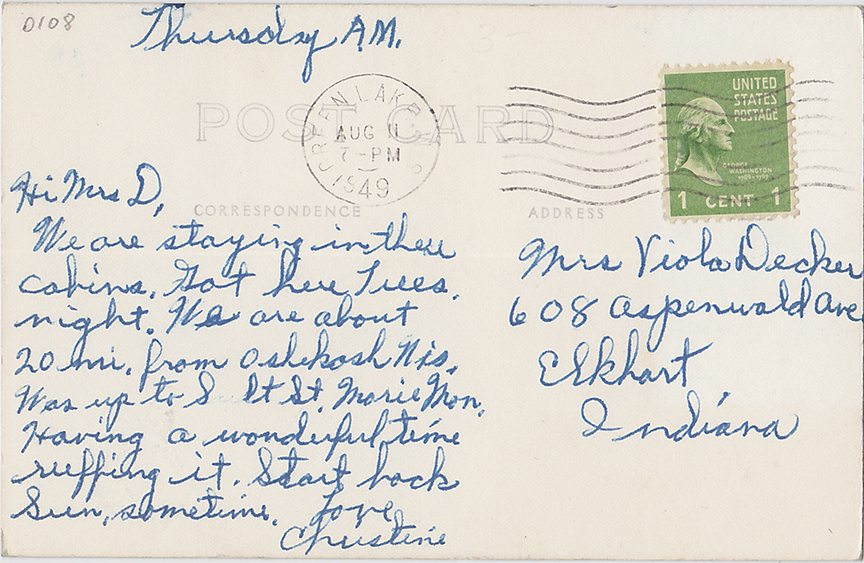 D108
Thursday A.M.
POST CARD
GREEN LAKE
AUG 11
7-PM
1949
UNITED
STATES
POSTAGE
GEORGE
WASHINGTON
1789-1797
1 CENT 1
CORRESPONDENCE
ADDRESS
Hi Mrs D,
We are staying in these
cabins. Got here Tues.
night. We are about
20 mi. from Oshkosh Wis.
Was up to S lt St. Marie Mon.
Having a wonderful time
ruffing it. Start back
Sun, sometime. Love
Christine
Mrs Viola Decker
608 Aspenwald Ave
Elkhart
Indiana